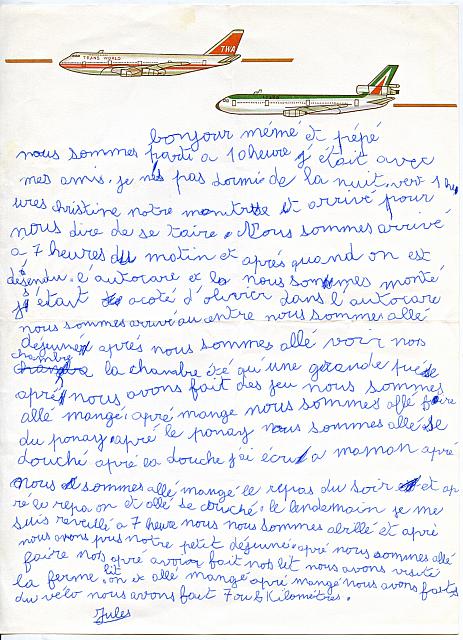 TRANS WORLD
TWA
bonjour mémé et pépé
nous sommes parti a 10 heure j'était avec
mes amis. je pas dormi de la nuit. vert 1
ures christine notre et arrivé pour
nous dire de se taire. Nous sommes arrivé
à 7 heures du matin et après quand on est
désendu. l'autocare et la nous sommes monté
j'était acoté d'olivier dans l'autocare
nous sommes arrivé au entre nous sommes allé
déjeuner aprés nous sommes allé voir nos
chambre
la chambre été qu'une grande
apré nous avons fait des jeu nous sommes
allé mangé. apré mange nous sommes allé faire
du ponay. apré le ponay nous sommes allé se
douché apré la douche j'ai écri a maman apré
nous sommes allé mangé le repas du soir et ap
ré le repa on et allé se couché. le lendemain je me
suis reveillé a 7 heure nous nous sommes abillé et apré
nous avons pris notre petit déjeuné. apré nous sommes allé
faire nos
lit
apré avoir fait nos lit nous avons visité
la ferme. on et allé mangé apré mangé nous avons faits
du vélo nous avons fait 7 ou 6 Kilométres.
Jules